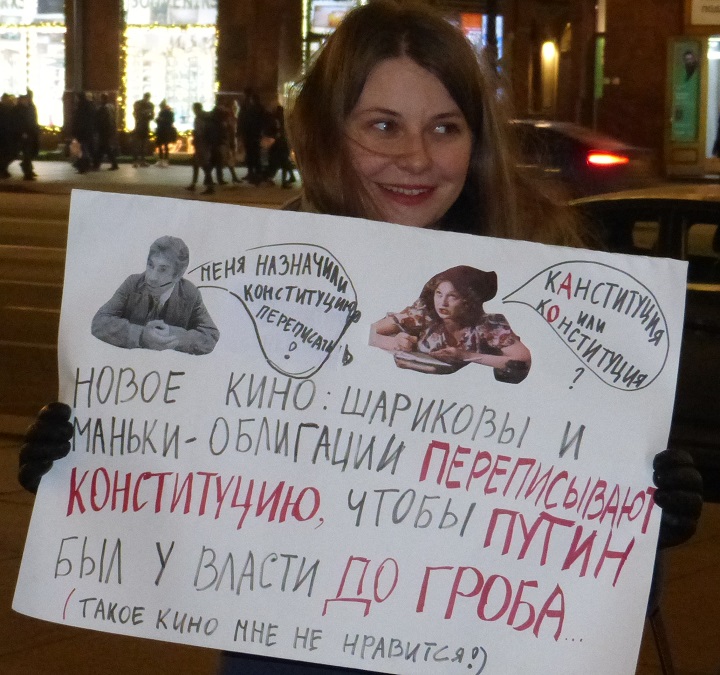 МЕНЯ НАЗНАЧИЛИ
КОНСТИТУЦИЮ
ПЕРЕПИСАТЬ
!
КАНСТИТУЦИЯ
ИЛИ
КОНСТИТУЦИЯ
?
НОВОЕ КИНО: ШАРИКОВЫ И
МАНЬКИ-ОБЛИГАЦИИ ПЕРЕПИСЫВАЮТ
КОНСТИТУЦИЮ, ЧТОБЫ ПУТИН
БЫЛ У ВЛАСТИ ДО ГРОБА...
(ТАКОЕ КИНО МНЕ НЕ НРАВИТСЯ!)